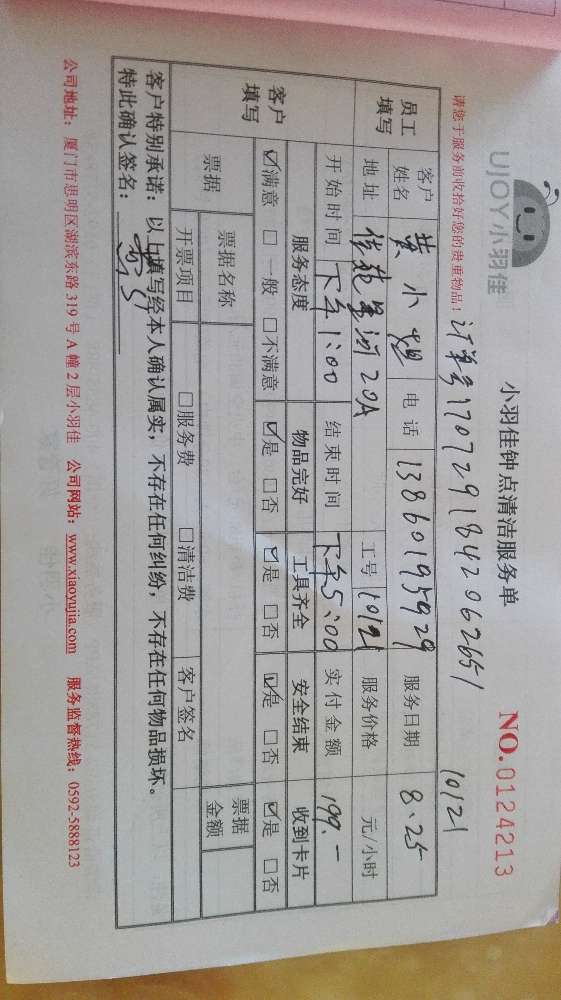 UJOY小羽佳
小羽佳钟点清洁服务单
NO.0124213
请您于服务前收拾好您的贵重物品!
订单号1707291842062651
10121
员工填写
客户姓名 黄小煜 电话 13860195929 服务日期 8.25
地址 信龙星河20A 工号 10121 服务价格 元/小时
客户填写
开始时间 下午1:00 结束时间 下午5:00 实付金额 199.-
服务态度 物品完好 工具齐全 安全结束 收到卡片
☑满意 □一般 □不满意 ☑是 □否 ☑是 □否 ☑是 □否 ☑是 □否
票据 票据名称 票据金额
开票项目 □服务费 □清洁费 客户签名
客户特别承诺:以上填写经本人确认属实,不存在任何纠纷,不存在任何物品损坏。
特此确认签名:
公司地址:厦门市思明区湖滨东路319号A幢2层小羽佳 公司网站:www.xiaoyujia.com 服务监督热线:0592-5888123